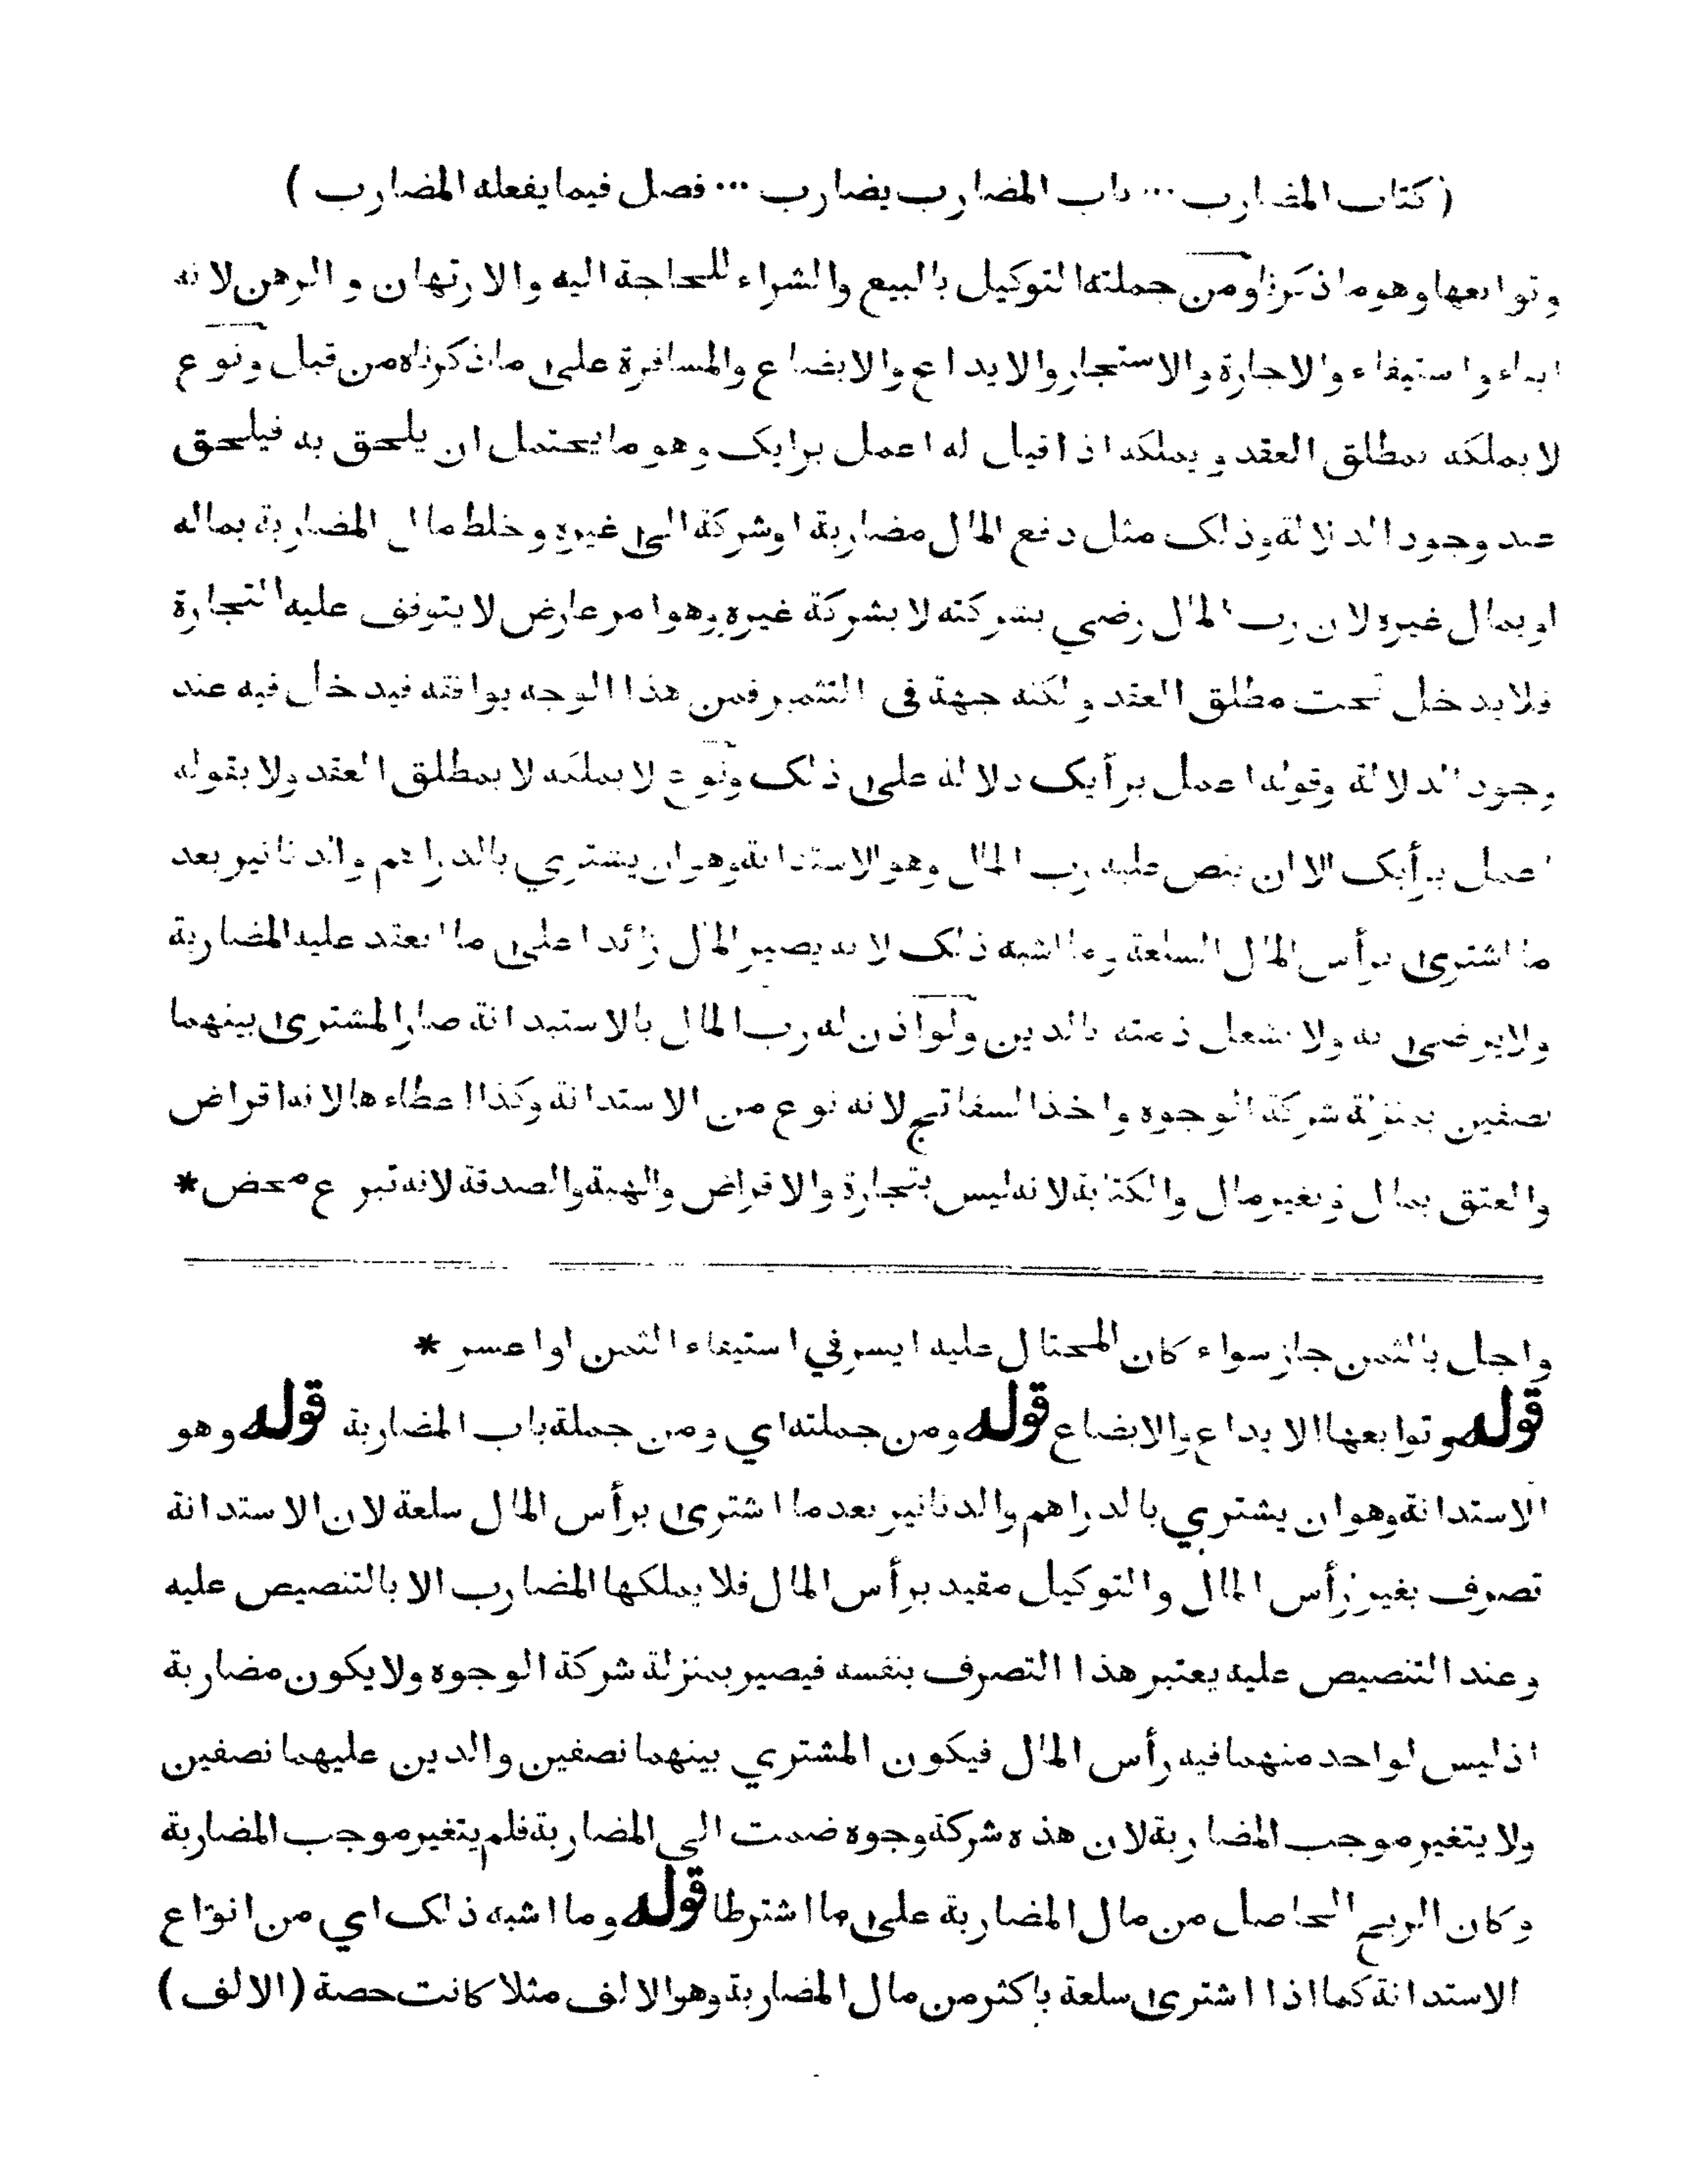 ( كتاب المضارب ... باب المضارب يضارب ... فصل فيما يفعله المضارب )
وتوابعها وهو ما ذكرنا ومن جملته التوكيل بالبيع والشراء للحاجة اليه والارتهان والرهن لانه
ايفاء واستيفاء والاجارة والاستجار والايداع والابضاع والمسافرة على ما ذكرناه من قبل ونوع
لا يملكه بمطلق العقد ويملكه اذا قيل له اعمل برايك وهو ما يحتمل ان يلحق به فيلحق
عند وجود الدلالة وذلك مثل دفع المال مضاربة او شركة الى غيره وخلط مال المضاربة بماله
او بمال غيره لان رب المال رضي بشركته لا بشركة غيره وهو امر عارض لا يتوقف عليه التجارة
فلا يدخل تحت مطلق العقد ولكنه جهة في التثمير فمن هذا الوجه يوافقه فيدخل فيه عند
وجود الدلالة وقوله اعمل برأيك دلالة على ذلك ونوع لا يملكه لا بمطلق العقد ولا بقوله
اعمل برأيك الا ان ينص عليه رب المال وهو الاستدانة وهو ان يشتري بالدراهم والدنانير بعد
ما اشترى برأس المال السلعة وما اشبه ذلك لانه يصير المال زائدا على ما انعقد عليه المضاربة
ولا يرضى به ولا تشغل ذمته بالدين ولو اذن له رب المال بالاستبدانة صار المشترى بينهما
نصفين بمنزلة شركة الوجوه واخذ السفاتج لانه نوع من الاستدانة وكذا اعطاءها لانه اقراض
والعتق بمال وبغير مال والكتابة لانه ليس بتجارة والاقراض والهبة والصدقة لانه تبرع محض *
واجل بالثمن جاز سواء كان المحتال عليه ايسر في استيفاء الثمن او اعسر *
قوله وتوابعها الايداع والابضاع قوله ومن جملته اي ومن جملة باب المضاربة قوله وهو
الاستدانة وهو ان يشتري بالدراهم والدنانير بعد ما اشترى برأس المال سلعة لان الاستدانة
تصرف بغير رأس المال والتوكيل مقيد برأس المال فلا يملكها المضارب الا بالتنصيص عليه
وعند التنصيص عليه يعتبر هذا التصرف بنفسه فيصير بمنزلة شركة الوجوه ولا يكون مضاربة
اذ ليس لواحد منهما فيه رأس المال فيكون المشتري بينهما نصفين والدين عليهما نصفين
ولا يتغير موجب المضاربة لان هذه شركة وجوه ضمت الى المضاربة فلم يتغير موجب المضاربة
وكان الربح الحاصل من مال المضاربة على ما اشترطا قوله وما اشبه ذلك اي من انواع
الاستدانة كما اذا اشترى سلعة باكثر من مال المضاربة وهو الالف مثلا كانت حصة (الالف)